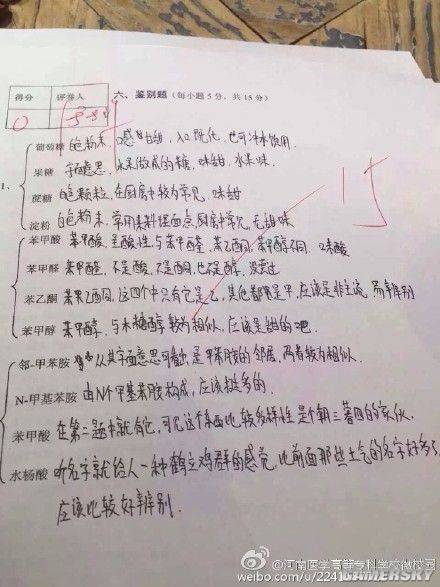 得分 评卷人
0
六、鉴别题（每小题5分，共15分）
葡萄糖 白色粉末，口感甘甜，入口既化，也可冲水饮用.
果糖 字面意思，水果做成的糖，味甜，水果味.
1. 蔗糖 白色颗粒，在厨房中较为常见，味甜
淀粉 白色粉末，常用来料理面点，厨房中常见，无甜味
-15
苯甲酸 苯甲酸，是酸性与苯甲醛，苯乙酮，苯甲醇不同，味酸
苯甲醛 苯甲醛，不是酸，不是酮，也不是醇，没意过
苯乙酮 苯乙酮，这四个中只有它是乙，其他都是甲，应该是非主流，易辛辨别
苯甲醇 苯甲醇，与木糖醇较为相似，应该是甜的吧.
邻-甲苯胺 从其字面意思可触，是甲苯胺的邻居，两者较为相似.
N-甲基苯胺 由N个甲基苯胺构成，应该挺多的.
苯甲酸 在第二题中就有它，可见这个东西比较多样性是个朝三暮四的家伙.
水杨酸 听名字就给人一种鹤立鸡群的感觉，比前面那些土气的名字好多了
应该比较好辨别.
@河南医学高等专科学校微校园
weibo.com/u/22410
GAMERSKY